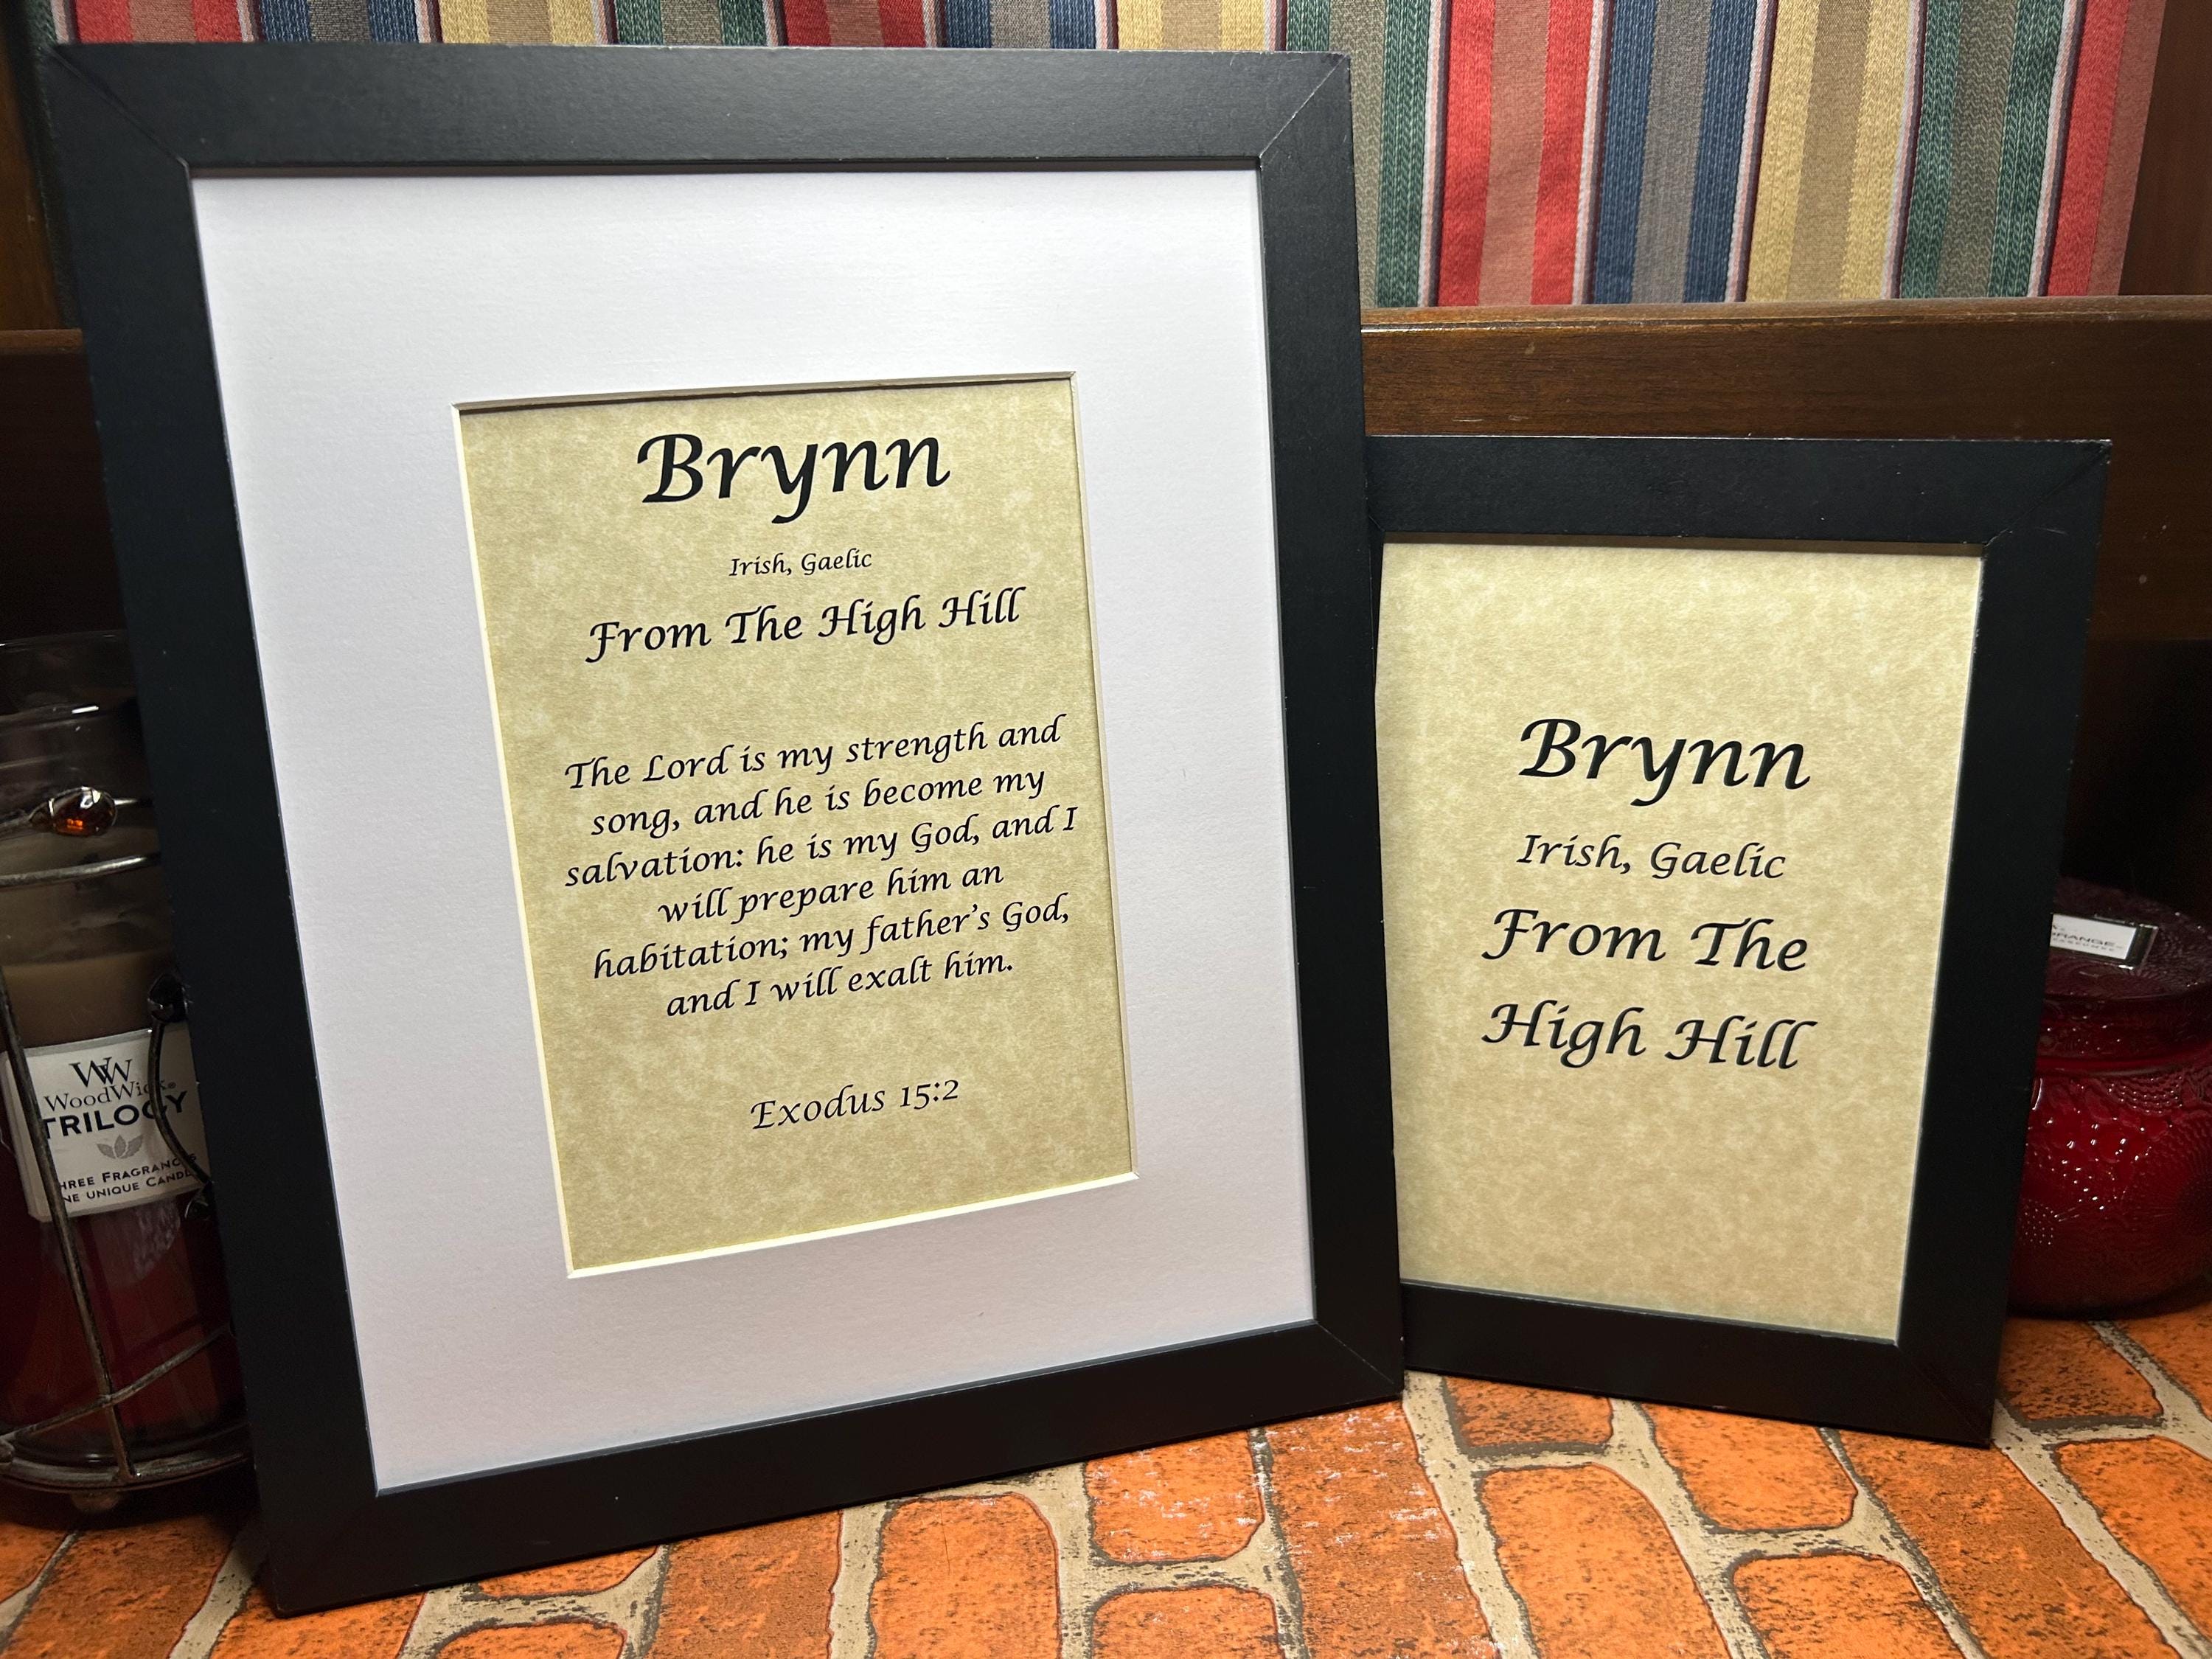 Brynn
Irish, Gaelic
From The High Hill
The Lord is my strength and
song, and he is become my
salvation: he is my God, and I
will prepare him an
habitation; my father's God,
and I will exalt him.
Exodus 15:2
Brynn
Irish, Gaelic
From The
High Hill
WW
WoodWick®
TRILOGY